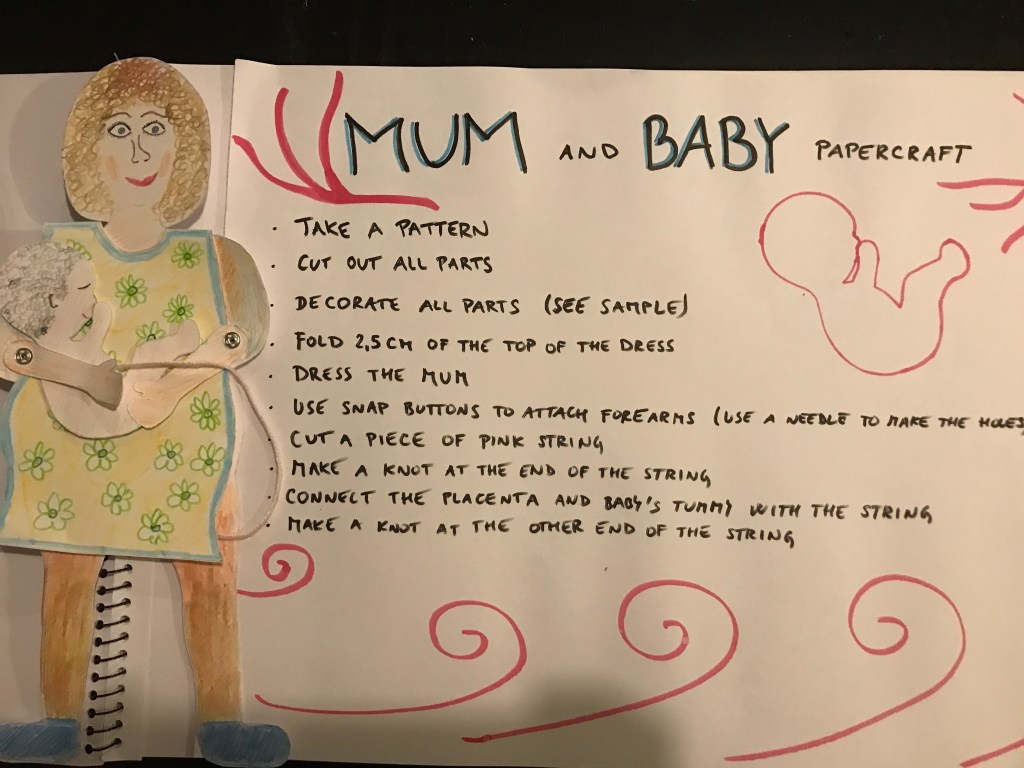 MUM AND BABY PAPERCRAFT
· TAKE A PATTERN
· CUT OUT ALL PARTS
· DECORATE ALL PARTS (SEE SAMPLE)
· FOLD 2,5 CM OF THE TOP OF THE DRESS
· DRESS THE MUM
· USE SNAP BUTTONS TO ATTACH FOREARMS (USE A NEEDLE TO MAKE THE HOLES)
· CUT A PIECE OF PINK STRING
· MAKE A KNOT AT THE END OF THE STRING
· CONNECT THE PLACENTA AND BABY'S TUMMY WITH THE STRING
· MAKE A KNOT AT THE OTHER END OF THE STRING